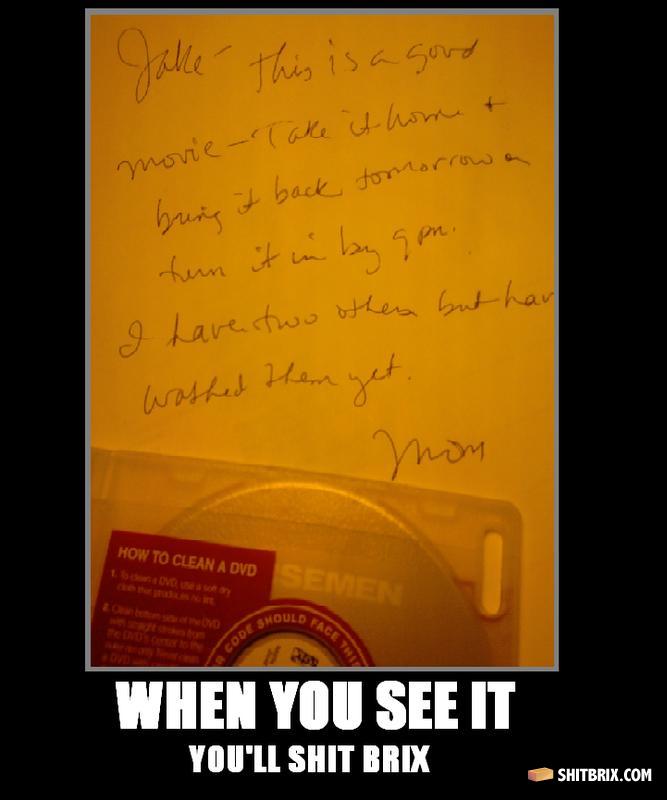 Jake - This is a good
movie - Take it home +
bring it back tomorrow or
turn it in by 9 pm.
I have two others but hav
watched them yet.
Mom
HOW TO CLEAN A DVD
1. To clean a DVD, use a soft dry
cloth that produces no lint.
2. Clean bottom side of the DVD
with straight strokes from
the DVD's center to the
SEMEN
R CODE SHOULD FACE THI
WHEN YOU SEE IT
YOU'LL SHIT BRIX
SHITBRIX.COM